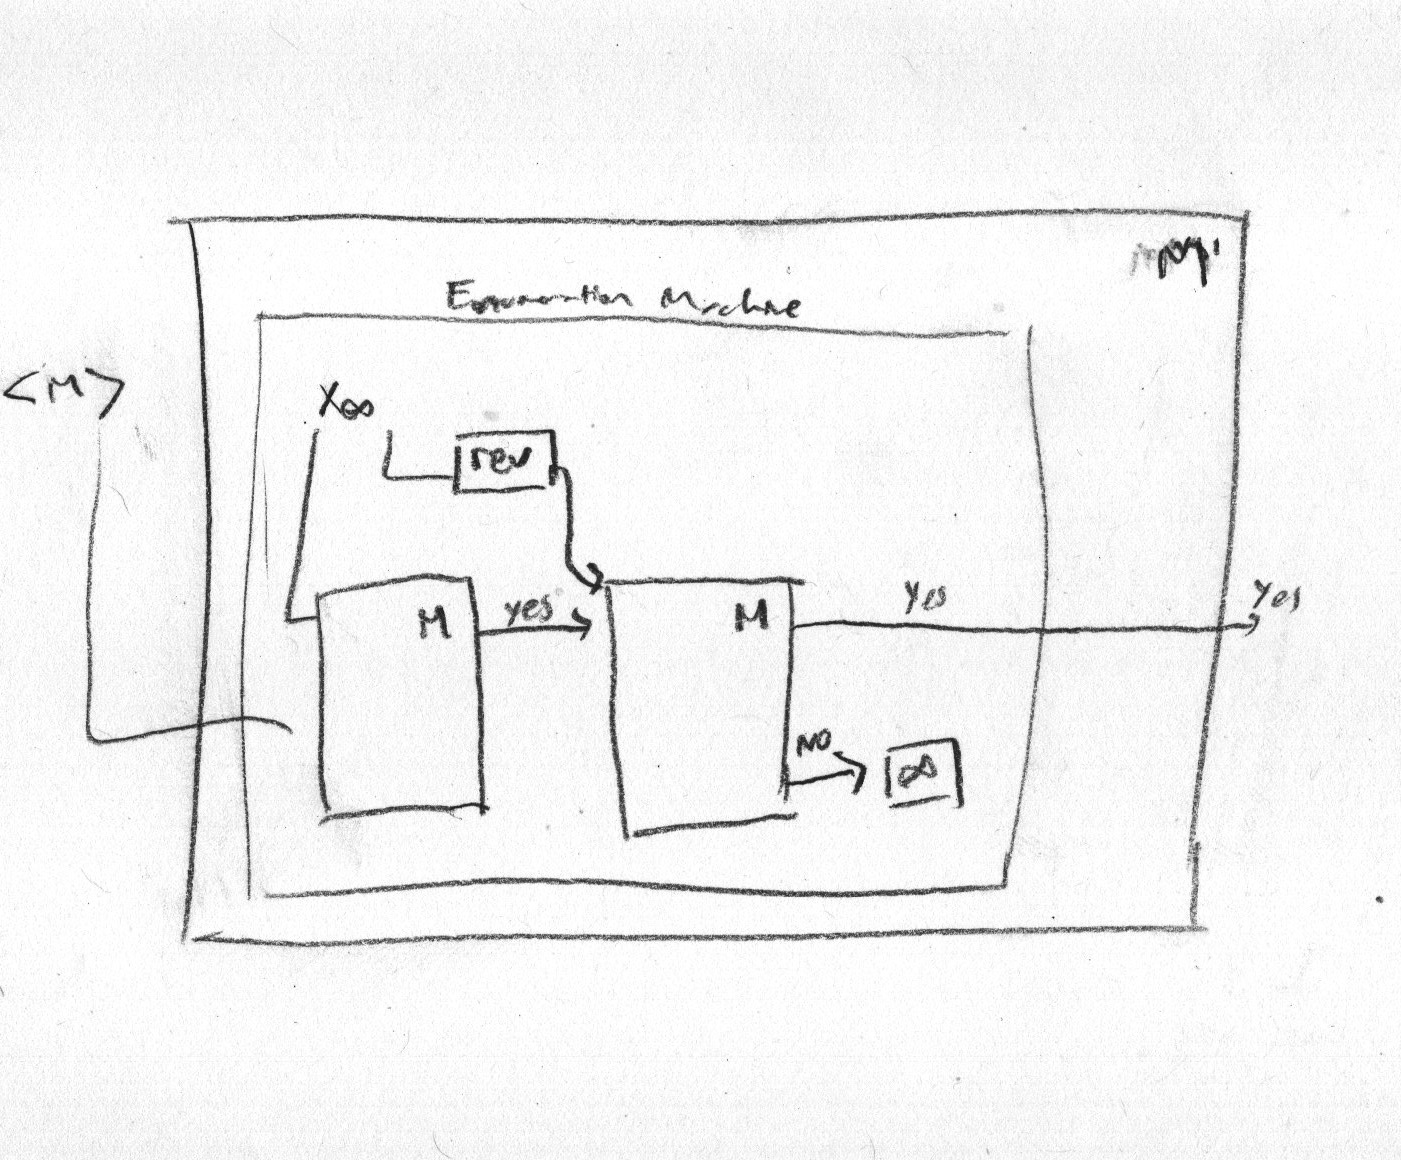 Enumeration Machine
<M>
X∞
rev
M
yes
M
yes
yes
NO
∞